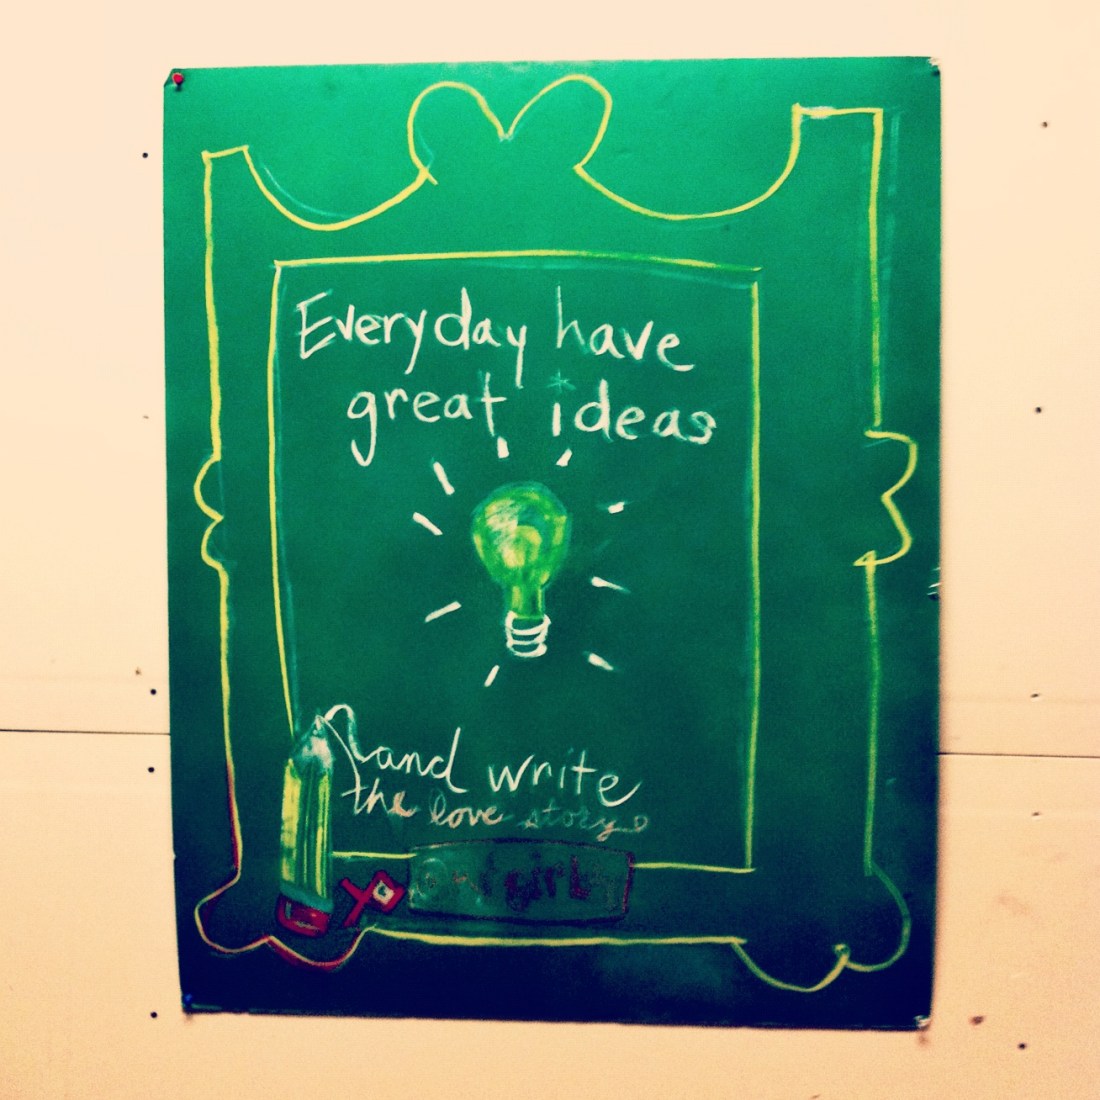 Everyday have
great ideas
and write
the love story